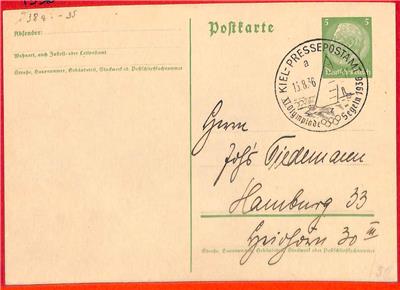 1936
Absender:
Wohnort, auch Zustell- oder Leitpostamt
Straße, Hausnummer, Gebäudeteil, Stockwerk od. Postschließfachnummer
Postkarte
5 5
Deutsches Reich
KIEL-PRESSEPOSTAMT
a
13.8.36
XI. Olympiade Segeln 1936
Herrn
Johs Tiedemann
Hamburg 33
30 III
Straße, Hausnummer, Gebäudeteil, Stockwerk oder Postschließfachnummer